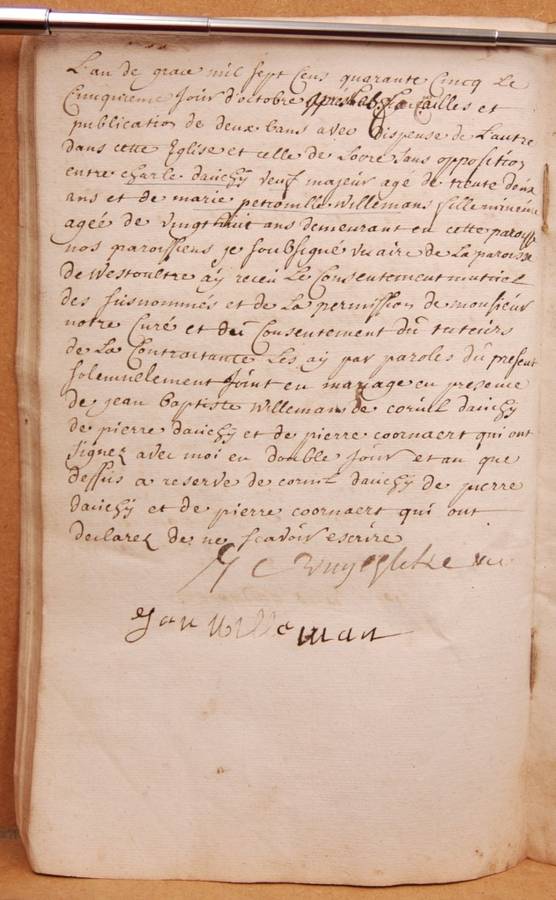 L'an de grace mil sept Cens quarante Cincq Le
Cuinquieme Jour d'octobre aprés les fiancailles et
publication de deux bans avec dispense de L'autre
dans cette Eglise et celle de Locre sans opposition
entre charle dauchÿ veuf majeur agé de trente deux
ans et de marie petronille Willemans fille mineure
ageé de vingt huit ans demeurant en cette paroisse
nos paroissiens je soubsigné vicaire de La paroisse
de Westoultre aÿ receu Le Consentement mutuel
des susnommés et de La permission de monsieur
notre Curé et du Consentement du tuteurs
de La Contractante Les aÿ par paroles du present
solemnelement Joint en mariage en presence
de jean Baptiste Willemans de cornil dauchÿ
de pierre dauchÿ et de pierre coornaert qui ont
signez avec moi en double Jour et an que
dessus a reserve de cornil dauchÿ de pierre
dauchÿ et de pierre coornaert qui ont
declarez de ne scavoir escrire
Jan Willeman